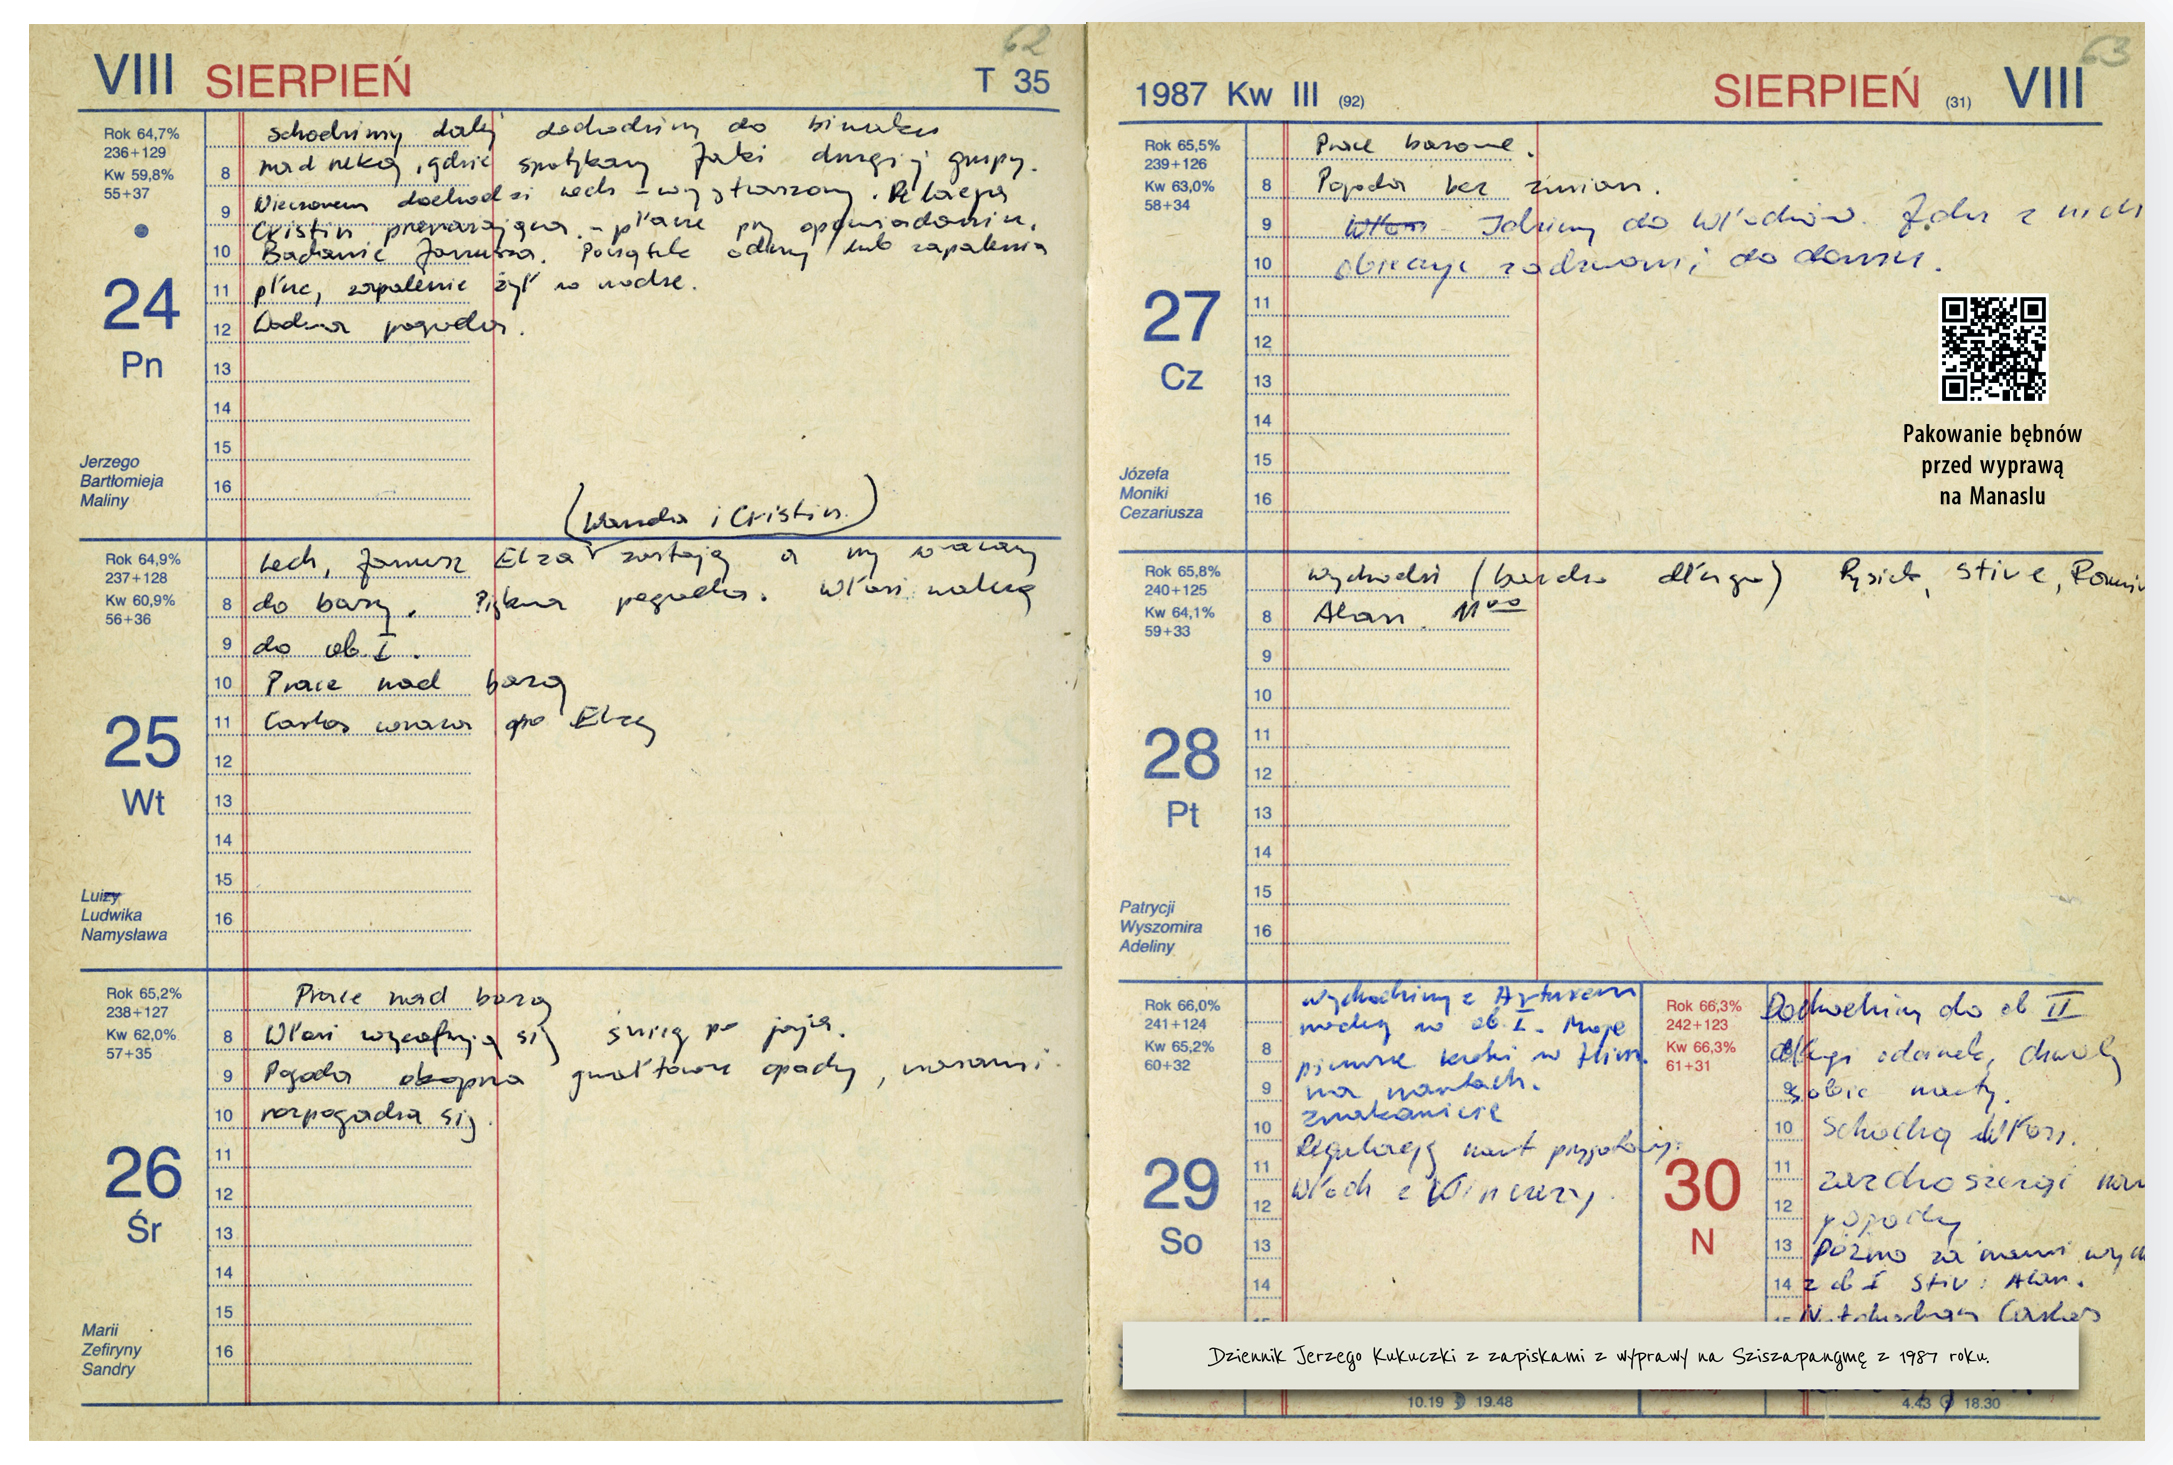 62
VIII SIERPIEŃ T 35
Rok 64,7%
236+129
Kw 59,8%
55+37
24
Pn
Jerzego
Bartłomieja
Maliny
8
9
10
11
12
13
14
15
16
schodzimy dalej dochodzimy do biwaku
nad rzeką, gdzie spotykamy Jaki drugiej grupy.
Wieczorem dochodzi Lech – wystraszony. Relacja
Cristin przerażająca. – płacze przy opowiadaniu.
Badanie Janusza. Początek odmy lub zapalenia
płuc, zapalenie żył w nodze.
Ładna pogoda.
(Wanda i Cristin.)
Rok 64,9%
237+128
Kw 60,9%
56+36
25
Wt
Luizy
Ludwika
Namysława
8
9
10
11
12
13
14
15
16
Lech, Janusz Elza zostają a my wracamy
do bazy. Piękna pogoda. Włosi
do ob I.
Prace nad bazą
Carlos wraca po Elzę
Rok 65,2%
238+127
Kw 62,0%
57+35
26
Śr
Marii
Zefiryny
Sandry
8
9
10
11
12
13
14
15
16
Prace nad bazą
Włosi wycofują się śnieg po jaja.
Pogoda okropna gwałtowne opady, czasami
rozpogadza się.
63
1987 Kw III (92) SIERPIEŃ (31) VIII
Rok 65,5%
239+126
Kw 63,0%
58+34
27
Cz
Józefa
Moniki
Cezariusza
8
9
10
11
12
13
14
15
16
Prace bazowe.
Pogoda bez zmian.
Włosi Idziemy do Włochów. Jeden z nich
obiecuje zadzwonić do domu.
Pakowanie bębnów
przed wyprawą
na Manaslu
Rok 65,8%
240+125
Kw 64,1%
59+33
28
Pt
Patrycji
Wyszomira
Adeliny
8
9
10
11
12
13
14
15
16
wychodzi (bardzo długo) Rysiek, Stive,
Alan. 11⁰⁰
Rok 66,0%
241+124
Kw 65,2%
60+32
29
So
8
9
10
11
12
13
14
wychodzimy z Arturem
nocleg w ob I. Moje
pierwsze kroki w
na nartach.
znakomicie
Regulację nart
Włoch z
10.19 19.48
Rok 66,3%
242+123
Kw 66,3%
61+31
30
N
9
10
11
12
13
14
Dochodzimy do ob II
długi odcinek, chwalę
sobie narty.
Schodzą Włosi.
pogody
Późno za nami
z ob I Stiv i Alan.
Carlos
4.43 18.30
Dziennik Jerzego Kukuczki z zapiskami z wyprawy na Sziszapangmę z 1987 roku.